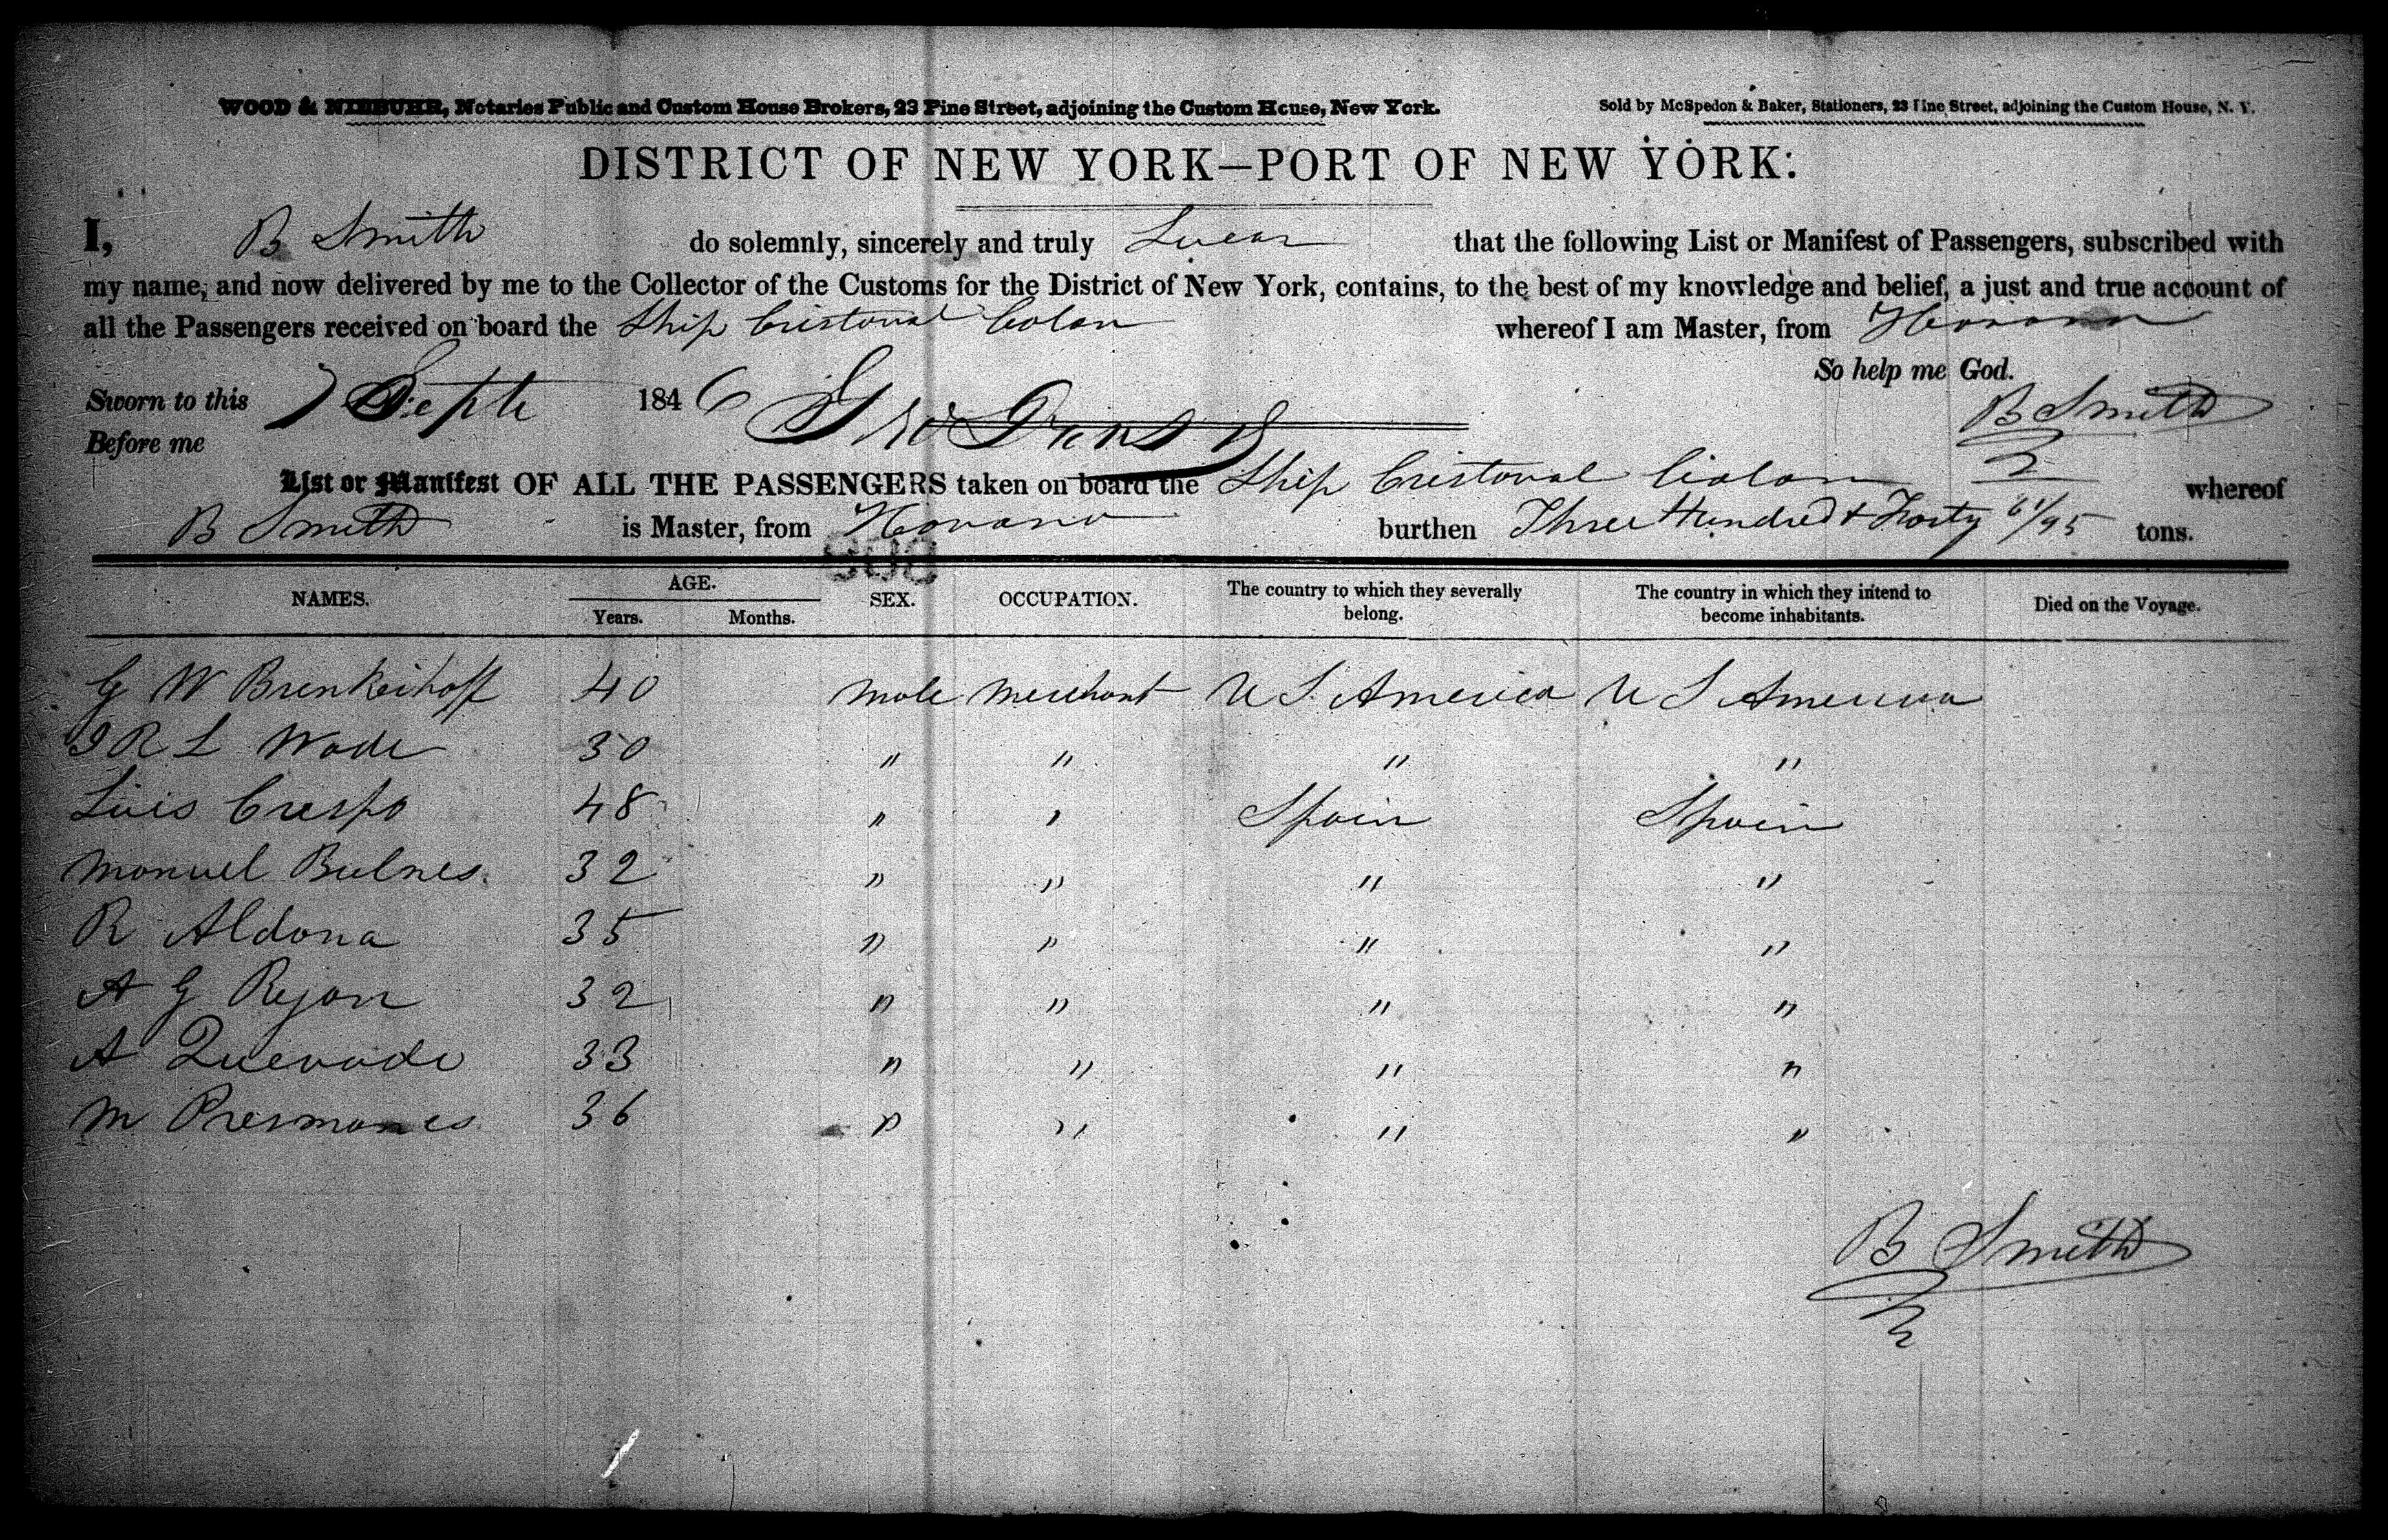 WOOD & NIEBUHR, Notaries Public and Custom House Brokers, 23 Pine Street, adjoining the Custom House, New York.
Sold by McSpedon & Baker, Stationers, 23 Pine Street, adjoining the Custom House, N. Y.
DISTRICT OF NEW YORK—PORT OF NEW YORK:
I, B Smith do solemnly, sincerely and truly Swear that the following List or Manifest of Passengers, subscribed with
my name, and now delivered by me to the Collector of the Customs for the District of New York, contains, to the best of my knowledge and belief, a just and true account of
all the Passengers received on board the Ship Cristoval Colon whereof I am Master, from Havana
So help me God.
Sworn to this 7 Septe 1846 B Smith
Before me
List or Manifest OF ALL THE PASSENGERS taken on board the Ship Cristoval Colon whereof
B Smith is Master, from Havana burthen Three Hundred & Forty 61/95 tons.
NAMES. AGE. SEX. OCCUPATION. The country to which they severally belong. The country in which they intend to become inhabitants. Died on the Voyage.
Years. Months.
G W Brenkeihoff 40 male merchant U S America U S America
J R L Wade 30 " " " "
Luis Crespo 48 " " Spain Spain
Manuel Bulnes 32 " " " "
R Aldona 35 " " " "
A G Rejon 32 " " " "
A Quevade 33 " " " "
M Presmanes 36 " " " "
B Smith